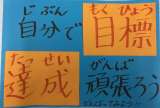 じぶん
自分で
もくひょう
目標
たっせい
達成
がんば
頑張ろう